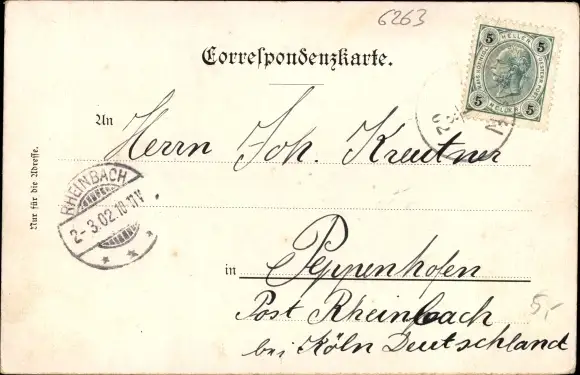 6263
5 HELLER 5
5 HELLER 5
Correspondenzkarte.
An
Herrn Joh. Kreutner
Nur für die Adresse.
RHEINBACH
2-3.02.10-11V
in Peppenhofen
Post Rheinbach
5,-
bei Köln Deutschland